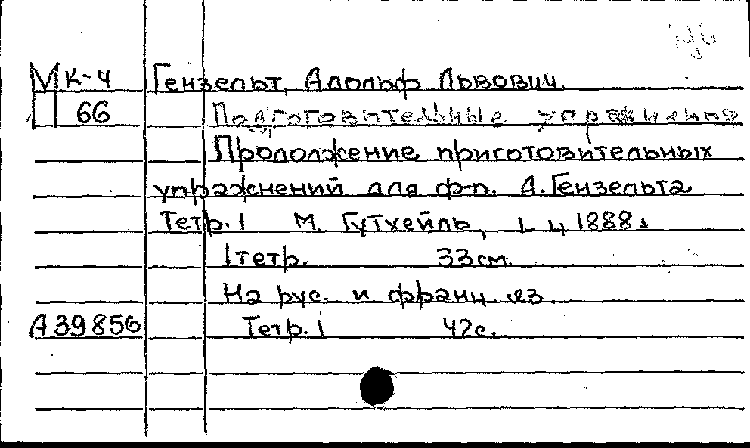 М К-4 Гензельт, Адольф Львович.
П 66 Подготовительные упражнения
Продолжение приготовительных
упражнений для ф-п. А. Гензельта
Тетр. 1 М. Гутхейль, 1888
1 тетр. 33 см.
На рус. и франц. яз.
А 39856 Тетр. 1 42 с.